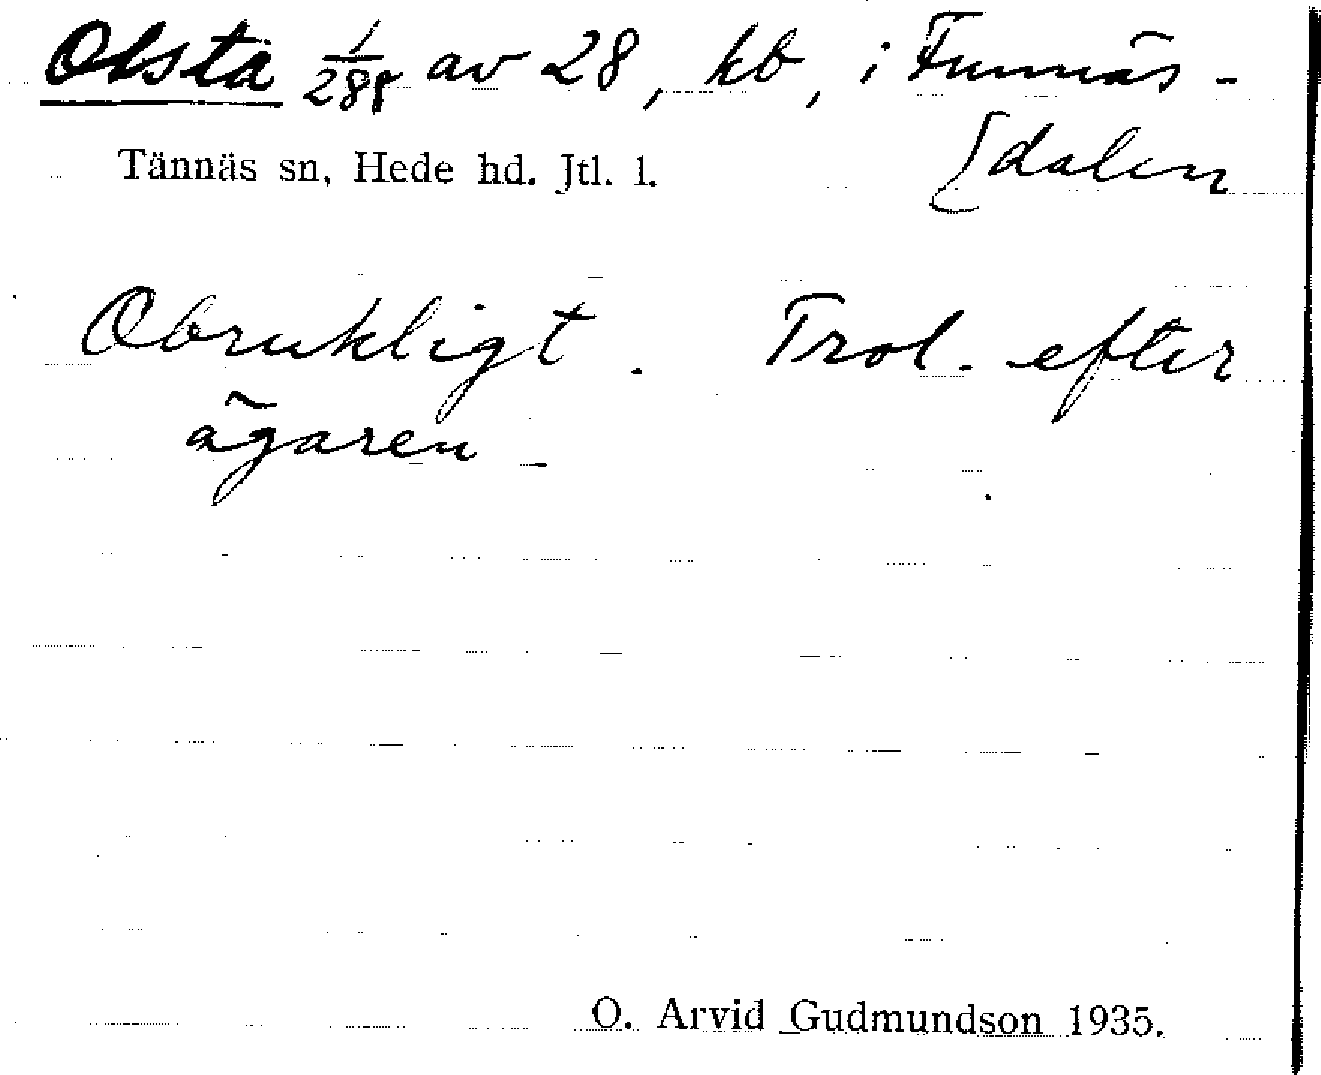 Olsta 1/288 av 28, hb, i Funnäs-
[dalen
Tännäs sn, Hede hd. Jtl. l.
Obrukligt. Trol. efter
ägaren
O. Arvid Gudmundson 1935.